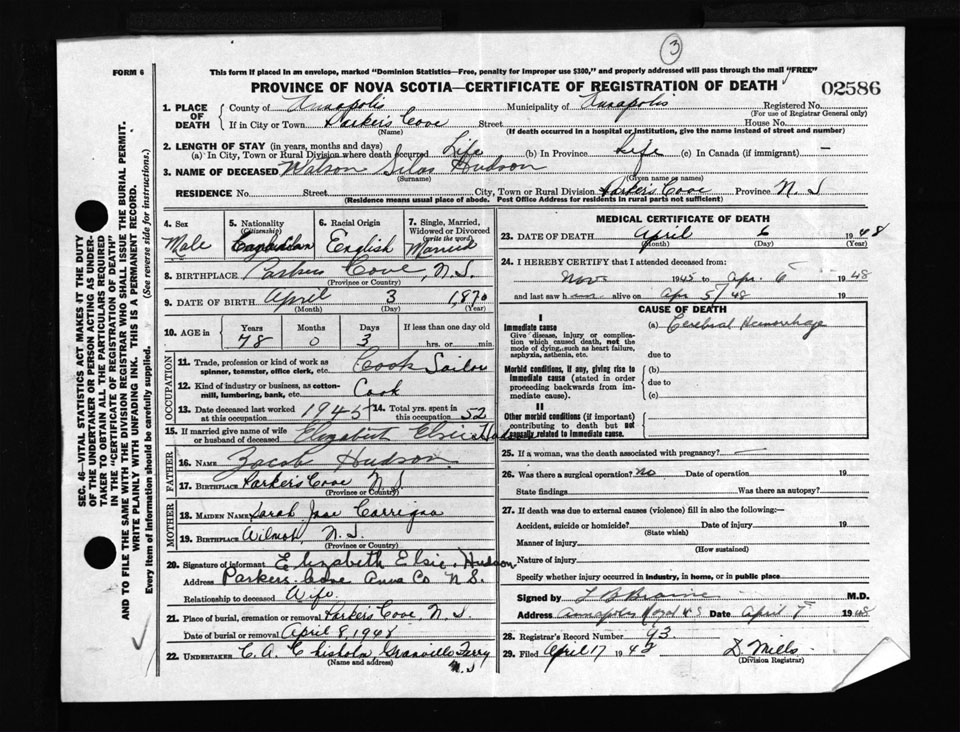 3
FORM 6
This form if placed in an envelope, marked "Dominion Statistics—Free, penalty for improper use $300," and properly addressed will pass through the mail "FREE"
PROVINCE OF NOVA SCOTIA—CERTIFICATE OF REGISTRATION OF DEATH
02586
1. PLACE OF DEATH
County of Annapolis Municipality of Annapolis Registered No.
(For use of Registrar General only)
If in City or Town Parker's Cove Street House No.
(Name) (If death occurred in a hospital or institution, give the name instead of street and number)
2. LENGTH OF STAY (in years, months and days)
(a) In City, Town or Rural Division where death occurred Life (b) In Province Life (c) In Canada (if immigrant) —
3. NAME OF DECEASED Watson Silas Hudson
(Surname) (Given name or names)
RESIDENCE No. Street City, Town or Rural Division Parker's Cove Province N.S
(Residence means usual place of abode. Post Office Address for residents in rural parts not sufficient)
4. Sex
Male
5. Nationality
(Citizenship)
Canadian
6. Racial Origin
English
7. Single, Married, Widowed or Divorced
(write the word)
Married
8. BIRTHPLACE Parkers Cove, N.S.
(Province or Country)
9. DATE OF BIRTH April 3 1,870
(Month) (Day) (Year)
10. AGE in
Years Months Days If less than one day old
78 0 3 hrs. or min.
OCCUPATION
11. Trade, profession or kind of work as spinner, teamster, office clerk, etc. Cook Sailor
12. Kind of industry or business, as cotton-mill, lumbering, bank, etc. Cook
13. Date deceased last worked at this occupation 1945 14. Total yrs. spent in this occupation 52
15. If married give name of wife or husband of deceased Elizabeth Elsie Hudson
FATHER
16. NAME Jacob Hudson
17. BIRTHPLACE Parker's Cove N.S
(Province or Country)
MOTHER
18. MAIDEN NAME Sarah Jane
19. BIRTHPLACE Wilmot, N.S.
(Province or Country)
20. Signature of informant Elizabeth Elsie Hudson
Address Parkers Cove Anna Co N.S.
Relationship to deceased Wife
21. Place of burial, cremation or removal Parker's Cove N.S
Date of burial or removal April 8, 1948
22. UNDERTAKER C. A. Chisholm Granville Ferry
(Name and address)
N.S
MEDICAL CERTIFICATE OF DEATH
23. DATE OF DEATH April 6 1948
(Month) (Day) (Year)
24. I HEREBY CERTIFY that I attended deceased from:
Nov. 1945 to Apr. 6 1948
and last saw him alive on Apr 5/48 19
CAUSE OF DEATH
I
Immediate cause
Give disease, injury or complication which caused death, not the mode of dying, such as heart failure, asphyxia, asthenia, etc.
(a) Cerebral Hemorrhage
due to
Morbid conditions, if any, giving rise to immediate cause (stated in order proceeding backwards from immediate cause).
(b)
due to
(c)
II
Other morbid conditions (if important) contributing to death but not causally related to immediate cause.
25. If a woman, was the death associated with pregnancy? —
26. Was there a surgical operation? No Date of operation 19
State findings Was there an autopsy?
27. If death was due to external causes (violence) fill in also the following:—
Accident, suicide or homicide? Date of injury 19
(State which)
Manner of injury
(How sustained)
Nature of injury
Specify whether injury occurred in industry, in home, or in public place
Signed by M.D.
Address Annapolis Royal N S Date April 7 1948
28. Registrar's Record Number 93
29. Filed April 17 1948 D. Mills
(Division Registrar)
SEC. 46—VITAL STATISTICS ACT MAKES IT THE DUTY
OF THE UNDERTAKER OR PERSON ACTING AS UNDERTAKER TO OBTAIN ALL THE PARTICULARS REQUIRED
IN THE "CERTIFICATE OF REGISTRATION OF DEATH"
AND TO FILE THE SAME WITH THE DIVISION REGISTRAR WHO SHALL ISSUE THE BURIAL PERMIT.
WRITE PLAINLY WITH UNFADING INK. THIS IS A PERMANENT RECORD.
Every item of information should be carefully supplied. (See reverse side for instructions.)